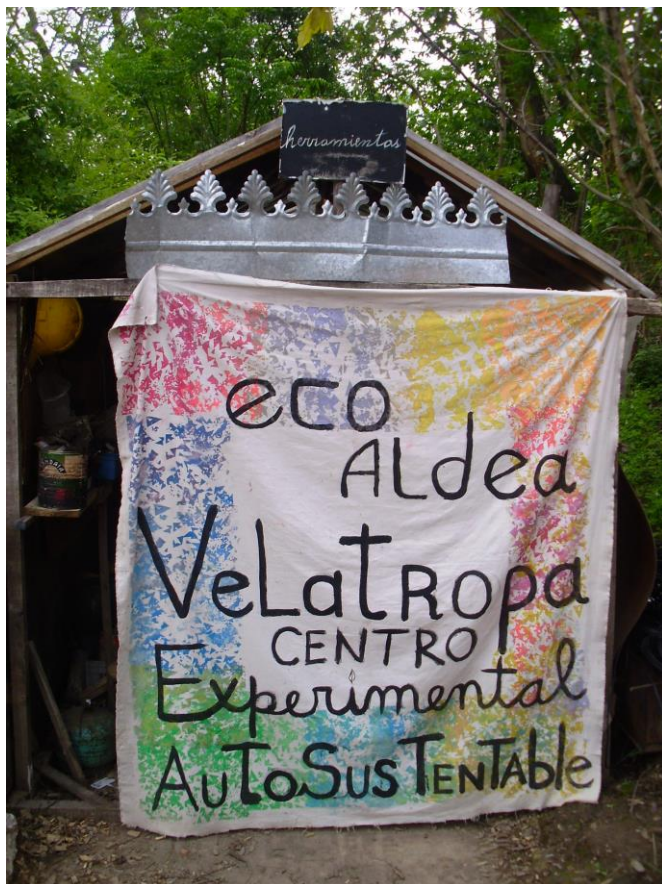 herramientas
eco
ALdea
VeLatRopa
CENTRO
Experimental
AuToSusTENTAble